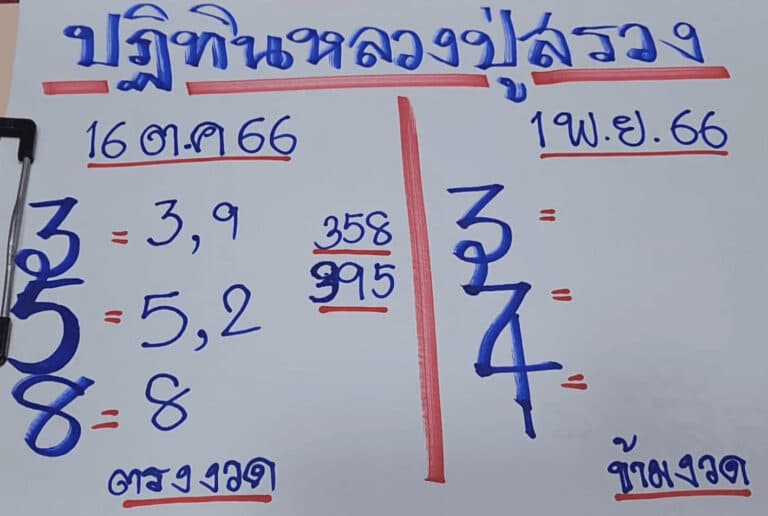 ปฏิทินหลวงปู่สรวง
16 ต.ค 66
3 = 3,9
5 = 5,2
8 = 8
358
395
ตรงงวด
1 พ.ย. 66
3 =
7 =
4 =
ข้ามงวด